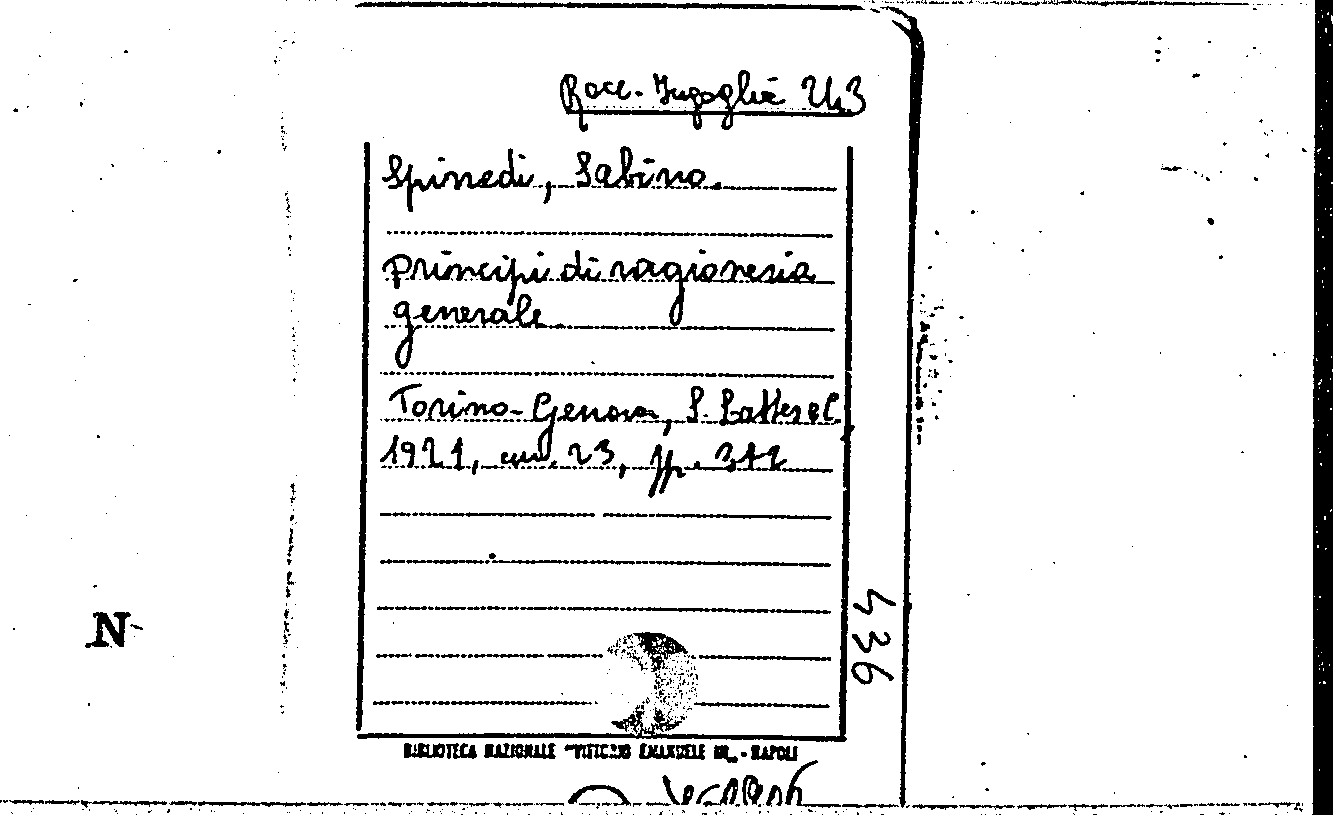 Racc. Ingoglia U.3
Spinedi, Sabino.
Principi di ragioneria
generale.
Torino-Genova, S. Lattes e C.
1921, cm. 23, pp. 342
436
N
BIBLIOTECA NAZIONALE "VITTORIO EMANUELE III„ - NAPOLI